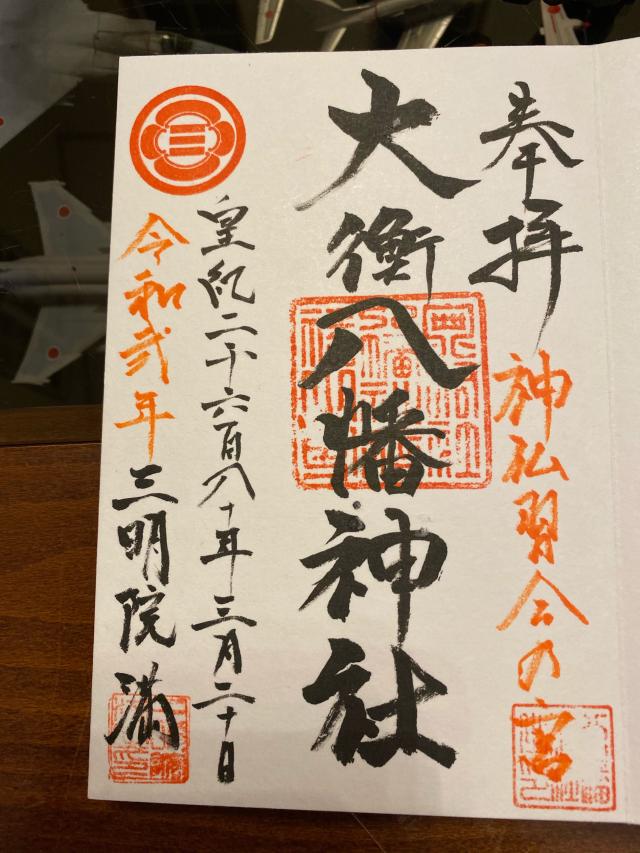 奉拝
神仏習合の宮
大衡八幡神社
皇紀二千六百八十年三月二十日
令和弐年
三明院
満